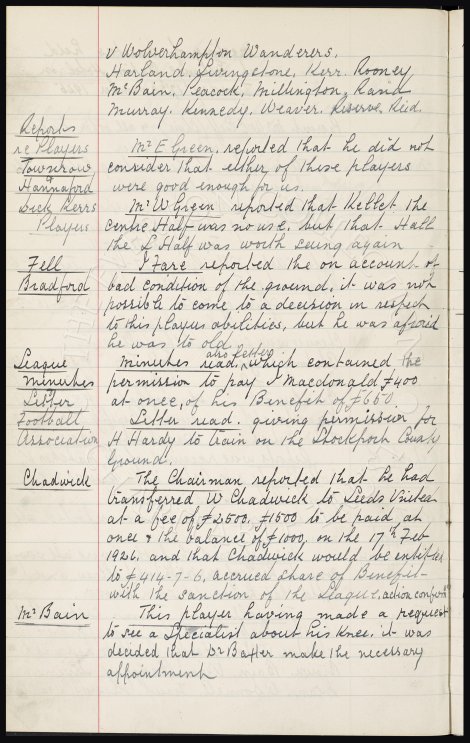 v Wolverhampton Wanderers.
Harland. Livingstone, Kerr. Rooney
McBain. Peacock, Millington, Rand
Murray. Kennedy. Weaver. Reserve. Reid.
Reports
re Players
Mr E Green. reported that he did not
Townrow
consider that either of these players
Hannaford
were good enough for us.
Dick Kerrs
Mr W Green reported that Kellet the
Players
centre Half was no use. but that Hall
the L Half was worth seeing again
Fell
J Fare reported the on account of
Bradford
bad condition of the ground, it was not
possible to come to a decision in respect
to this players abilities, but he was afraid
he was to old.
League
minutes read, also letter which contained the
minutes
permission to pay J Macdonald £400
Letter
at once, of his Benefit of £650.
Football
Letter read. giving permission for
Association
H Hardy to train on the Stockport County
Ground.
Chadwick
The Chairman reported that he had
transferred W Chadwick to Leeds United
at a fee of £2500, £1500 to be paid at
once & the balance of £1000, on the 17th Feb
1926, and that Chadwick would be entitled
to £414-7-6, accrued share of Benefit
with the sanction of the League, action confirmd
McBain
This player having made a request
to see a Specialist about his knee. it was
decided that Dr Baxter make the necessary
appointment